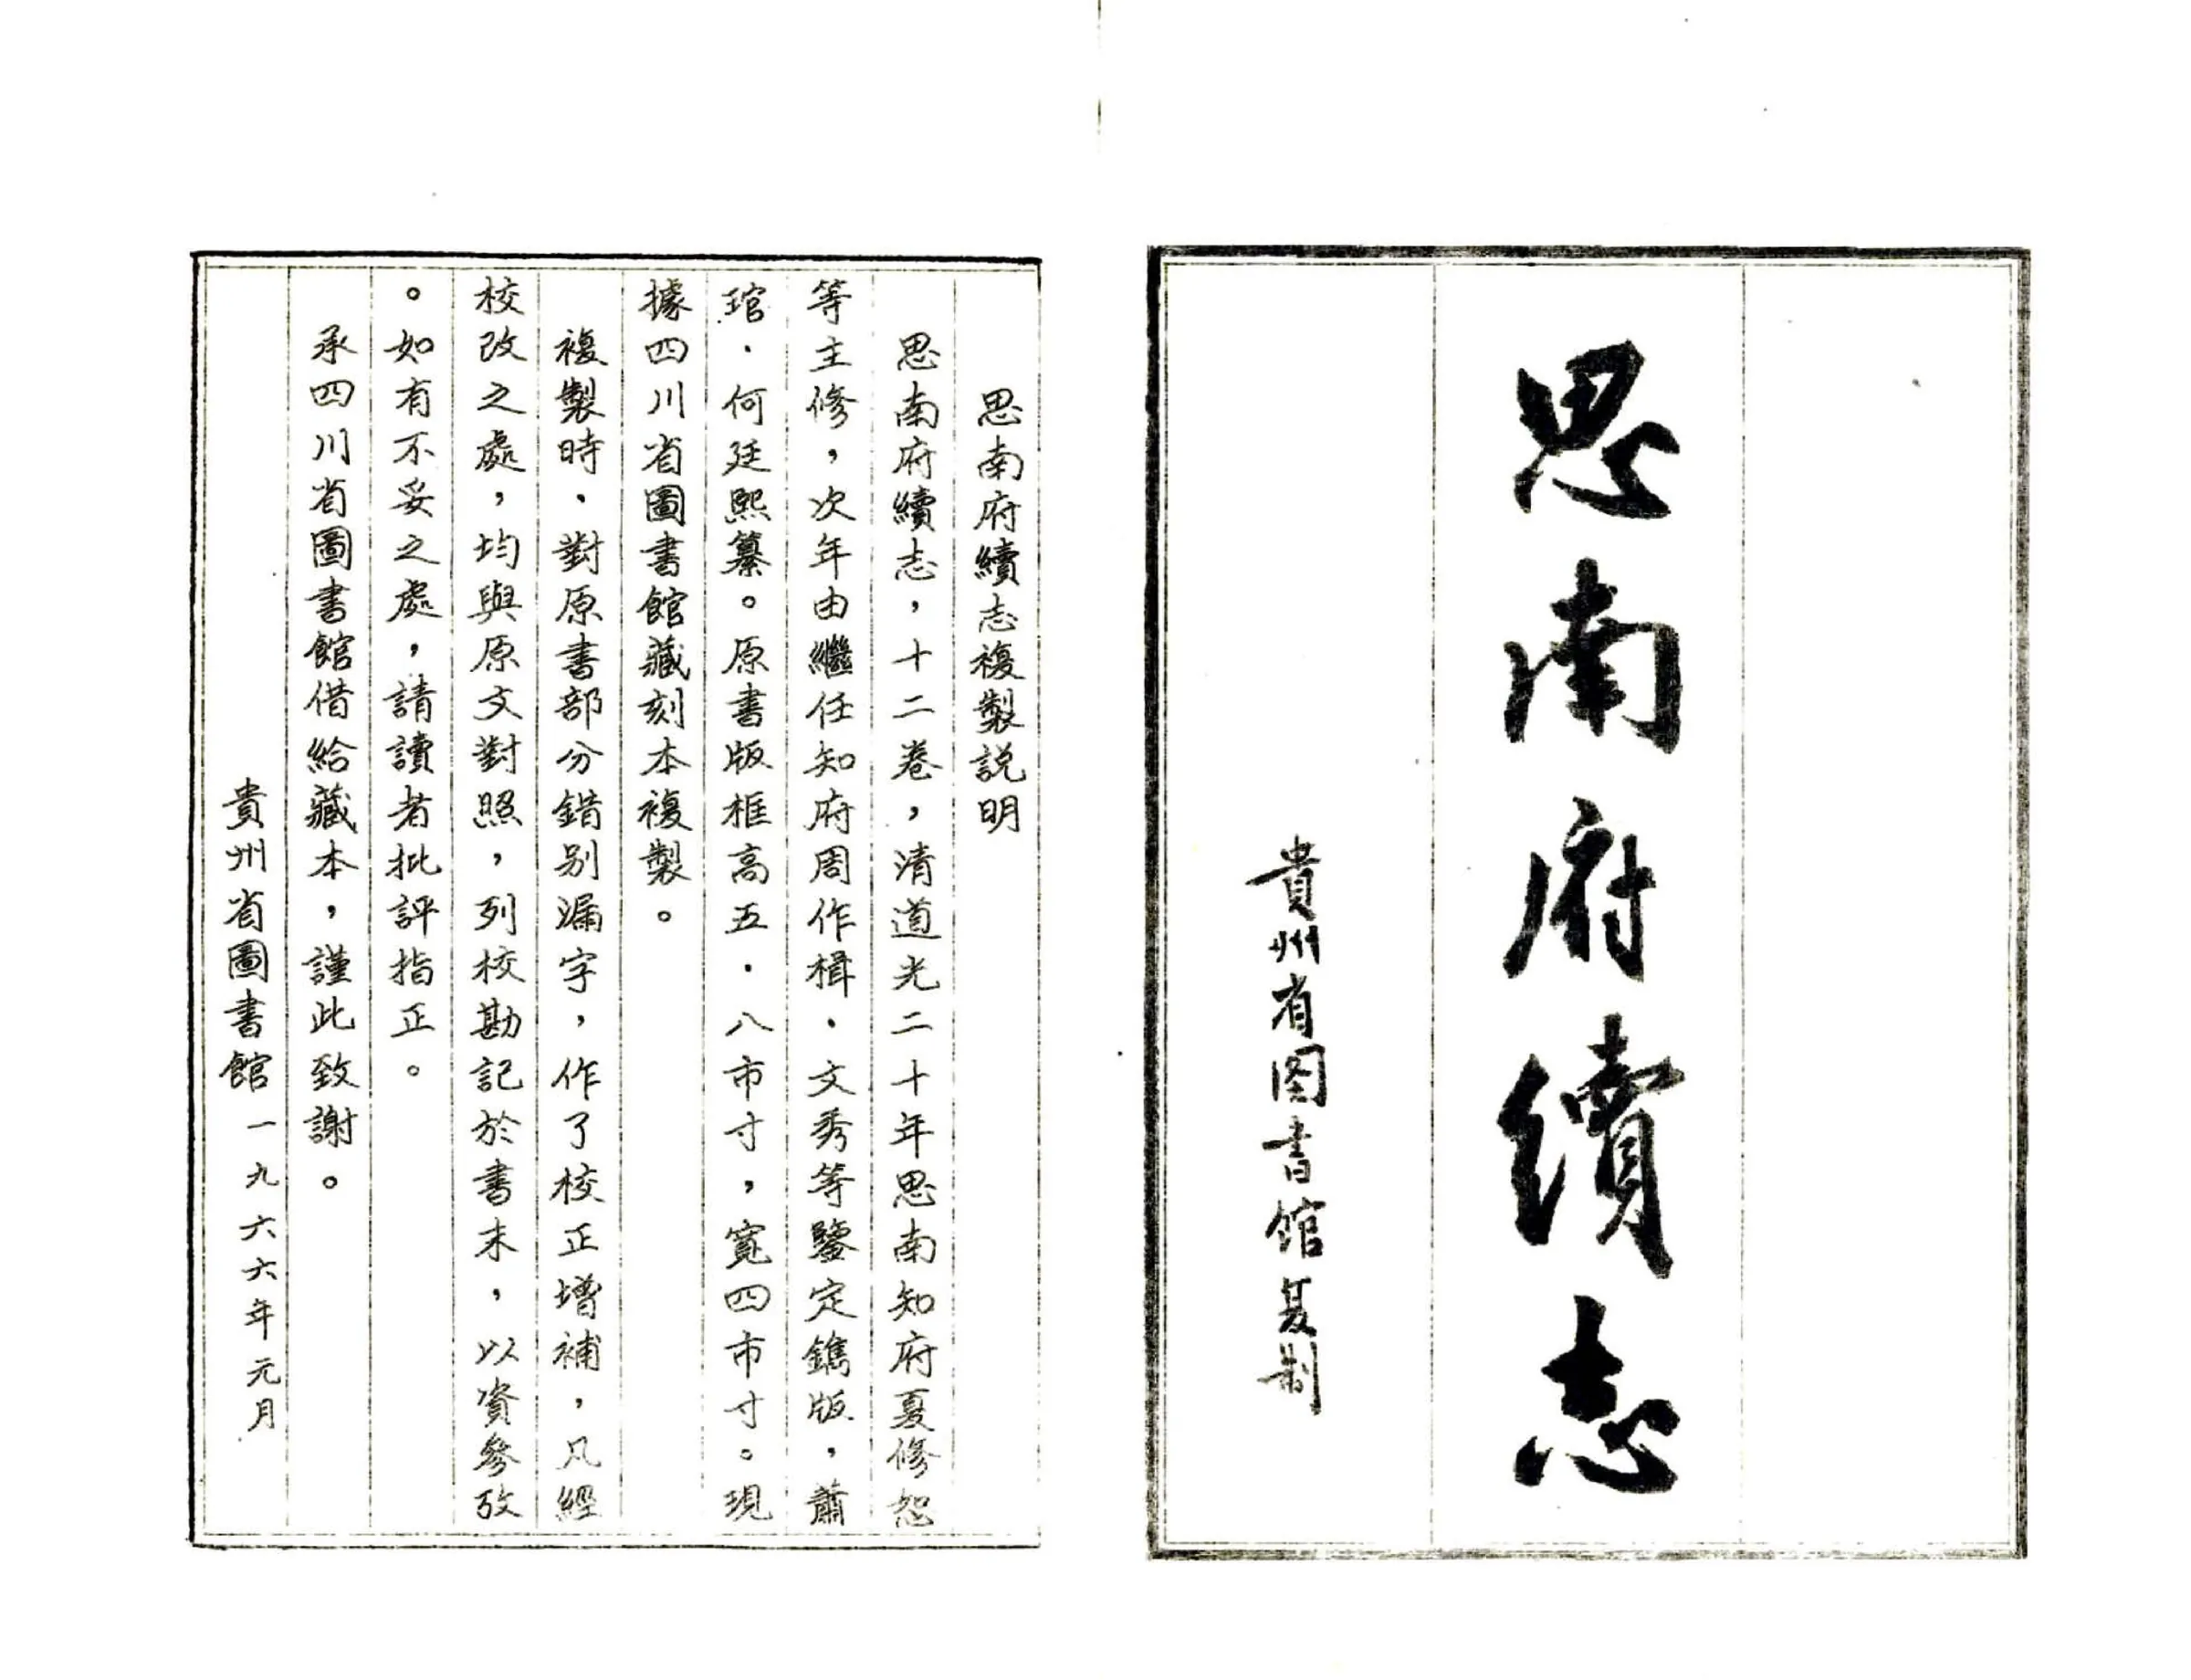 思南府續志
貴州省图书馆复制
思南府續志複製説明
思南府續志，十二卷，清道光二十年思南知府夏修恕
等主修，次年由繼任知府周作楫．文秀等鑒定鐫版，蕭
琯．何廷熙纂。原書版框高五．八市寸，寬四市寸。現
據四川省圖書館藏刻本複製。
複製時．對原書部分錯別漏字，作了校正增補，凡經
校改之處，均與原文對照，列校勘記於書末，以資參攷
。如有不妥之處，請讀者批評指正。
承四川省圖書館借給藏本，謹此致謝。
貴州省圖書館一九六六年元月